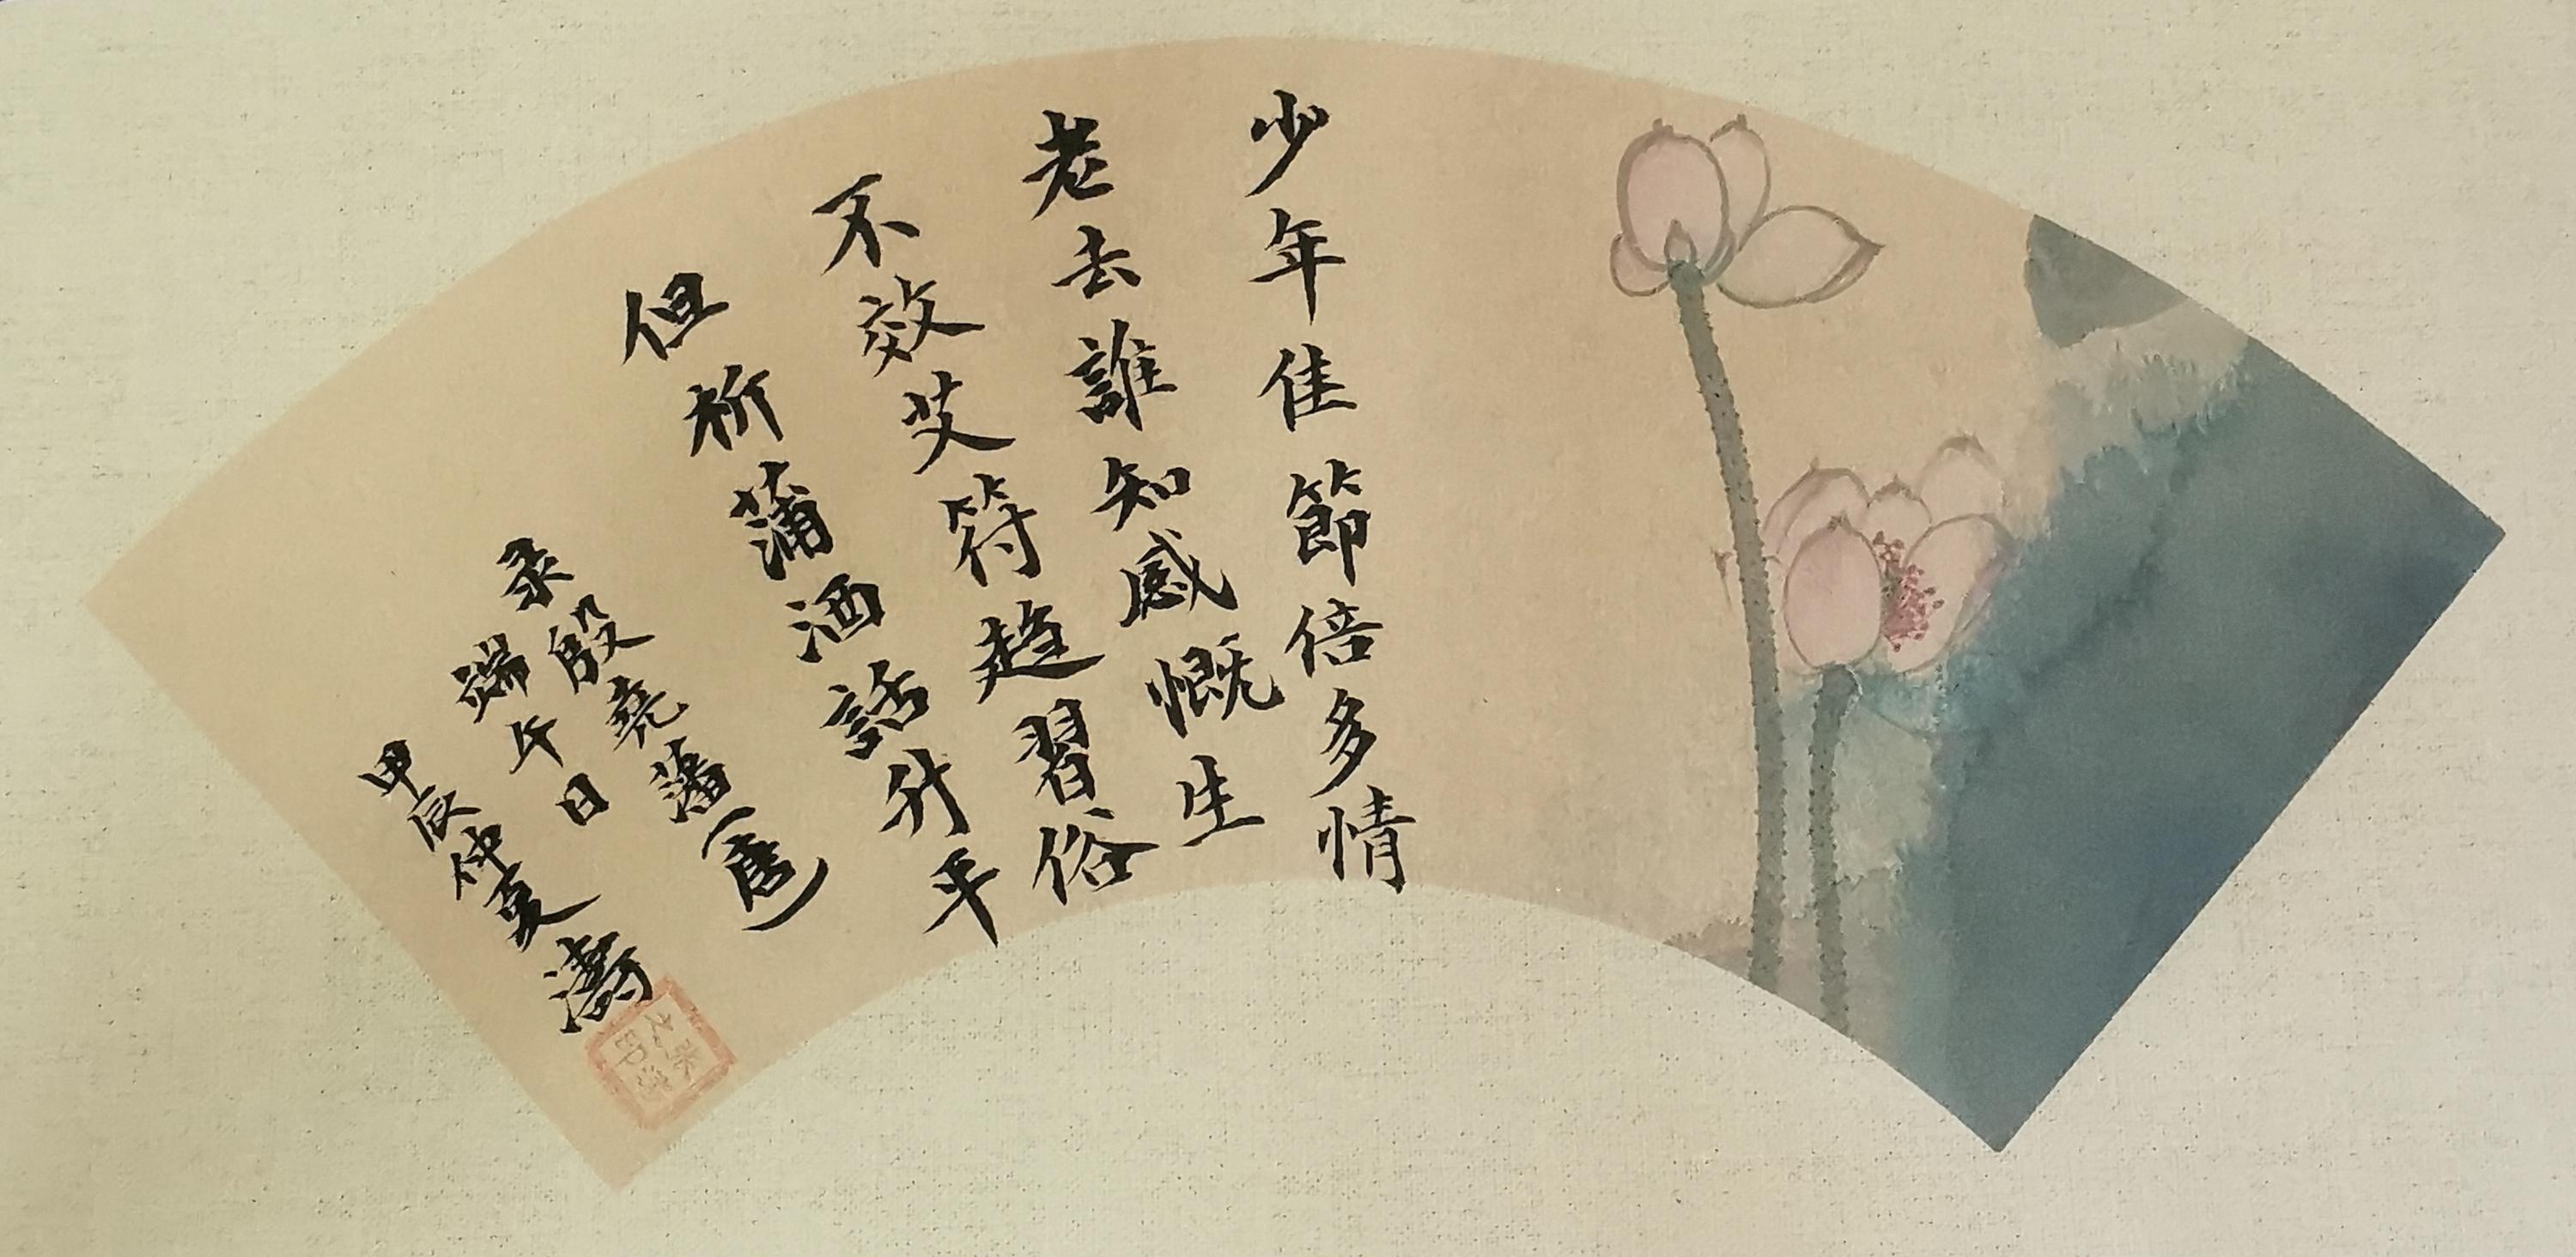 少年佳節倍多情
老去誰知感慨生
不效艾符趋習俗
但祈蒲酒話升平
录殷堯藩（唐）
端午日
甲辰仲夏濤
張濤之印